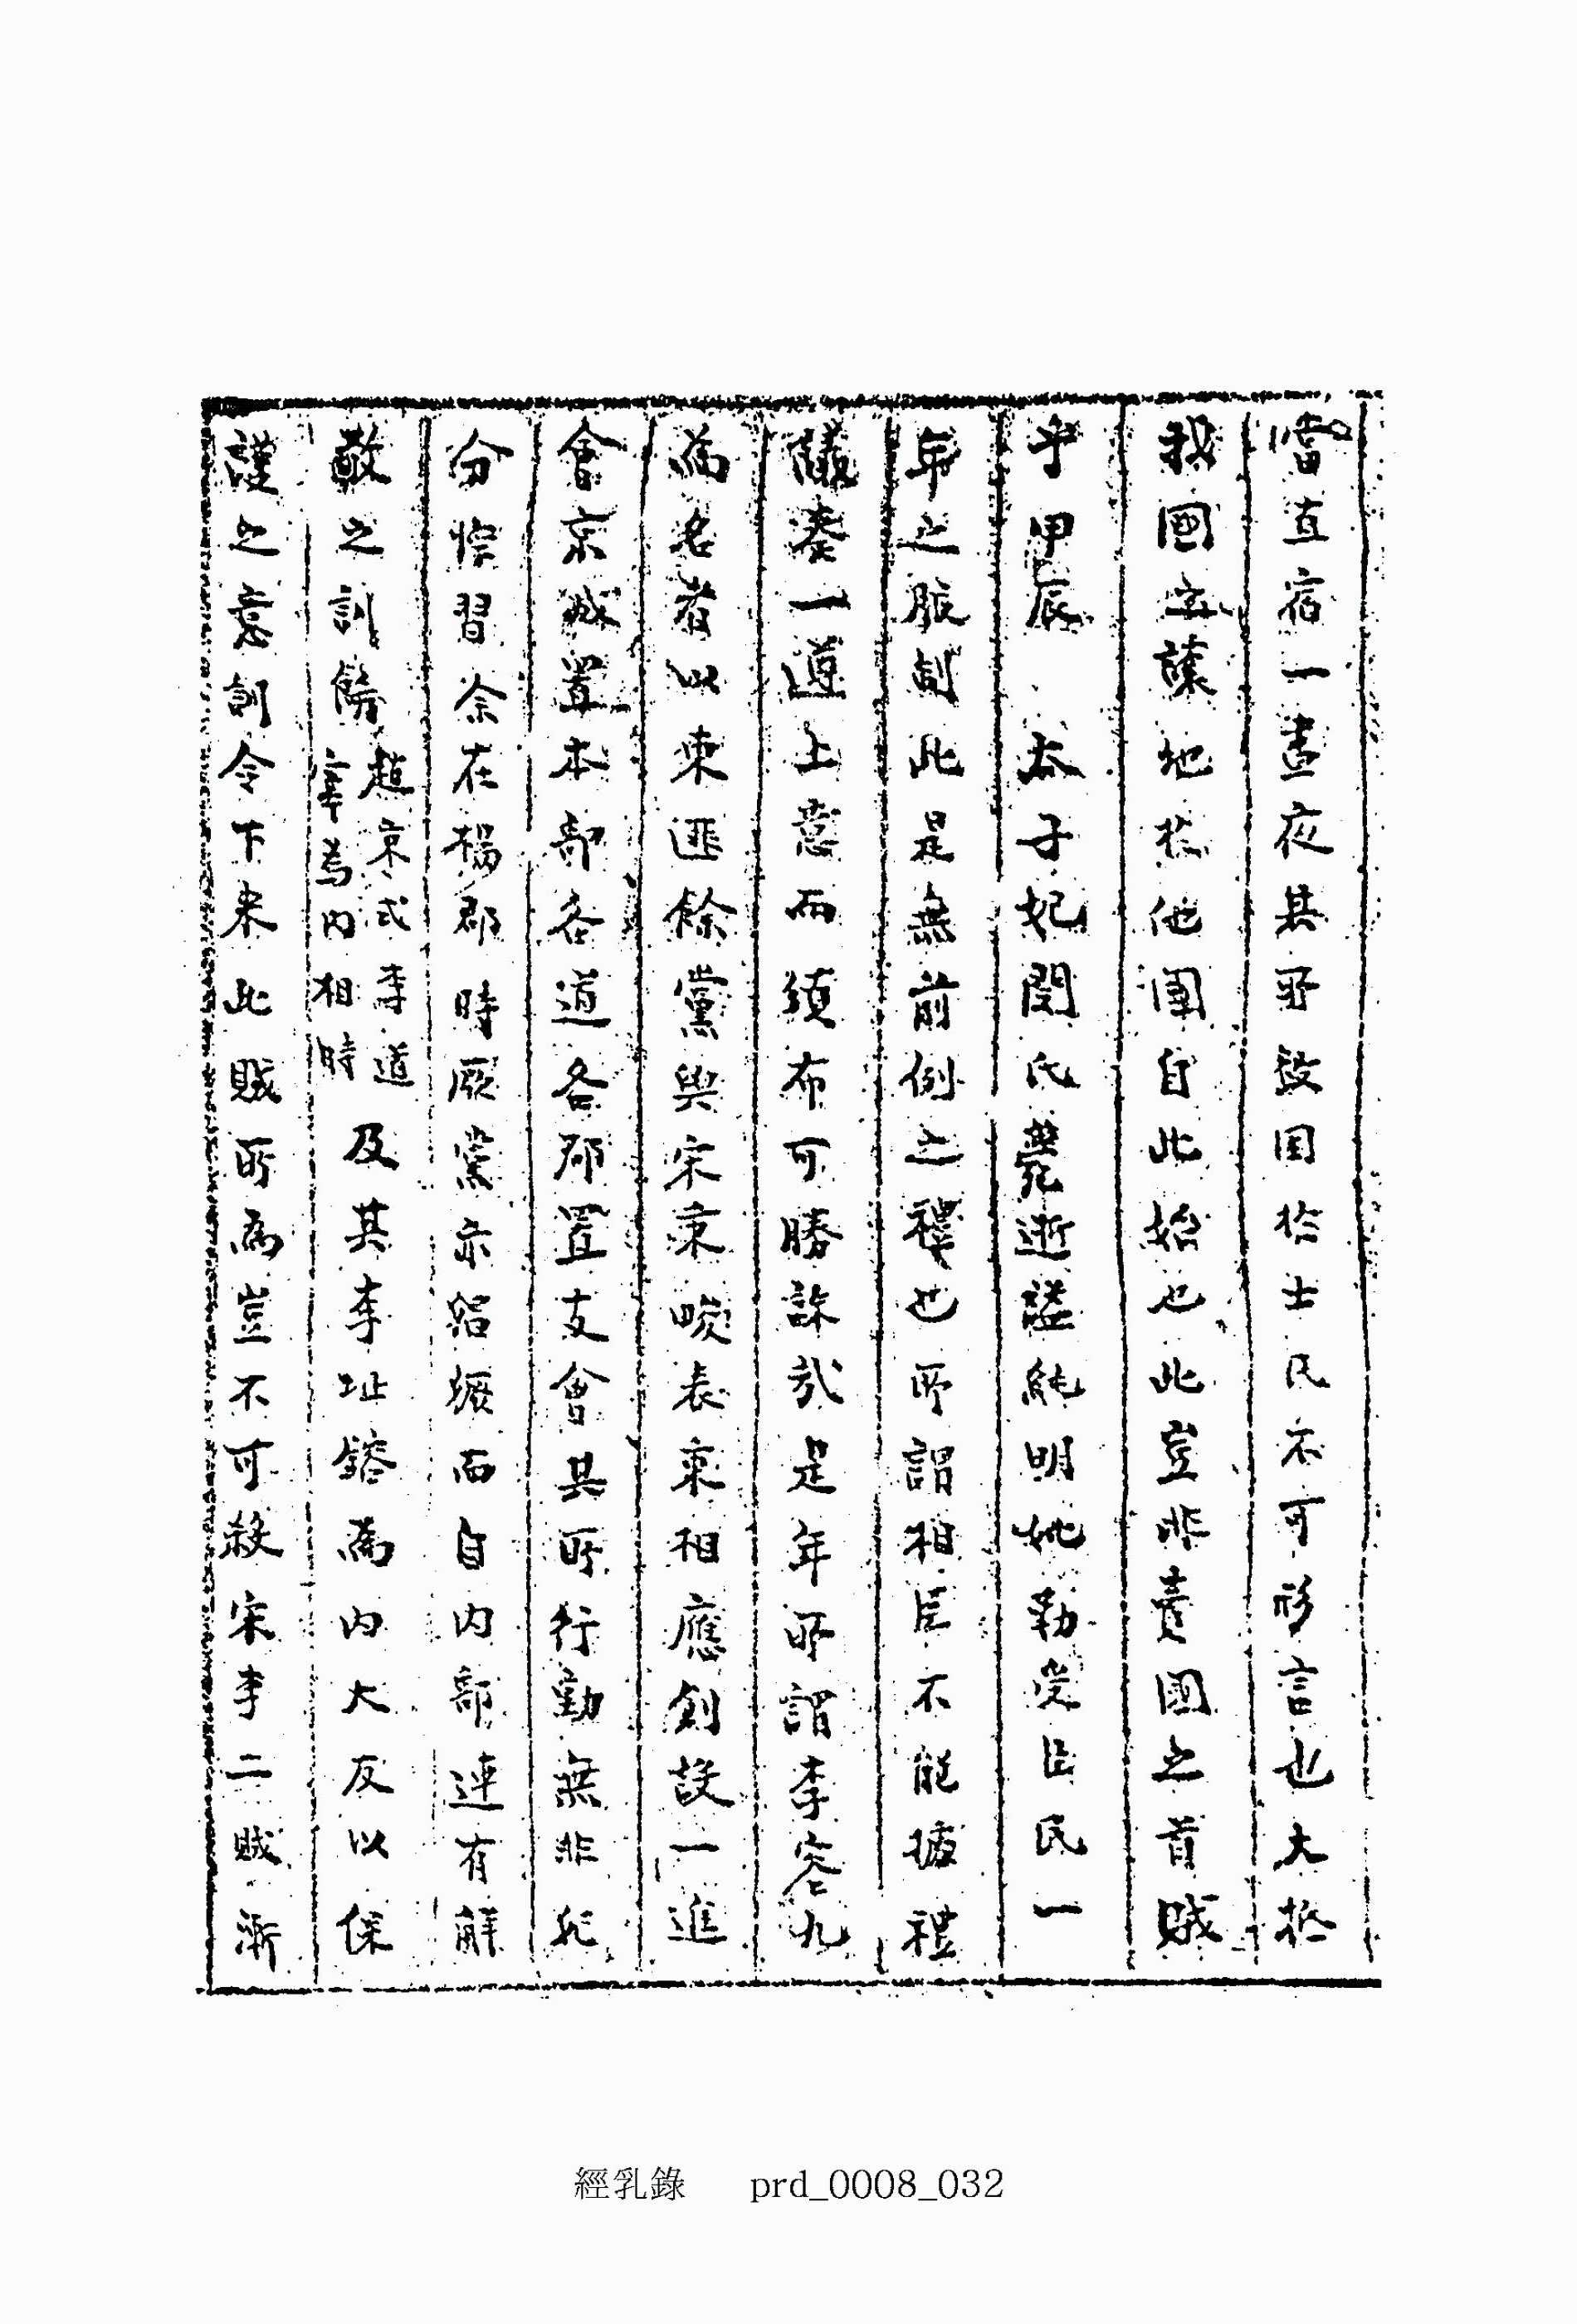 當直宿一晝夜其所致困於士民不可形言也大抵
我國立讓地於他國自此始也此豈非責國之首賊
乎甲辰 太子妃閔氏薨逝謚純明妣勒受臣民一
年之服制此是無前例之禮也所謂相臣不能據禮
儀奏一遵上意而須布可勝誅哉是年所謂李容九
為名者以東匪餘黨與宋秉畯表裏相應創設一進
會京城置本部各道各郡置支會其所行動無非死
分悖習余在楊郡時厥黨亦紹擴而自內部連有解
散之訓飭趙京式李道宰為內相時及其李址鎔為內大反以保
護之意訓令下來此賊所為豈不可殺宋李二賊漸
經乳錄 prd_0008_032